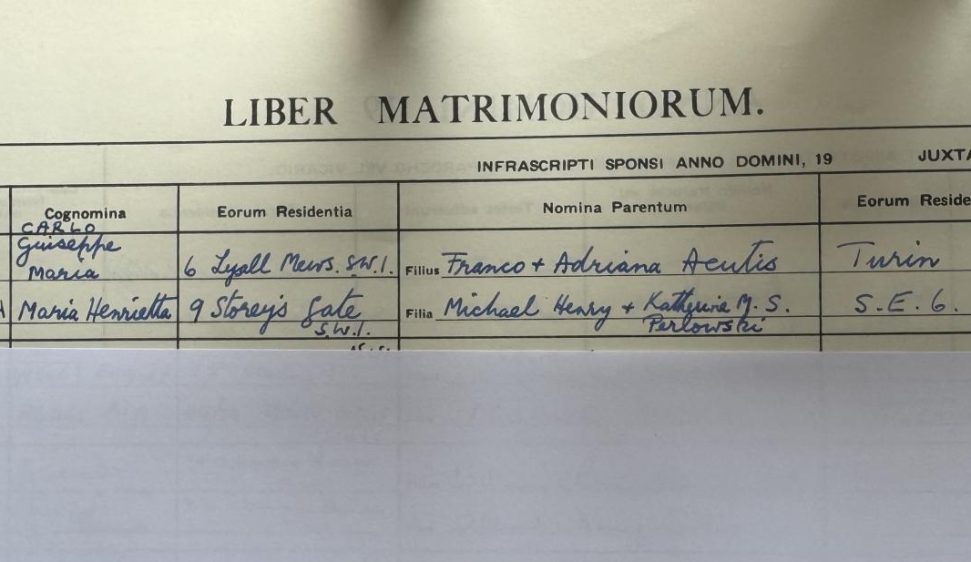 LIBER MATRIMONIORUM.
INFRASCRIPTI SPONSI ANNO DOMINI, 19 JUXTA
Cognomina Eorum Residentia Nomina Parentum Eorum Reside
CARLO
Guiseppe
Maria 6 Lyall Mews. S.W.1. Filius Franco + Adriana Acutis Turin
Maria Henrietta 9 Storey's Gate Filia Michael Henry + Katherine M. S. S.E.6.
S.W.1. Perlowski